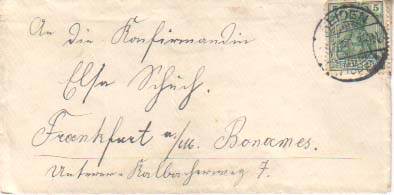 An die Konfirmandin
Elsa Schuch.
Frankfurt a/M. Bonames.
Unterer-Kalbacherweg 7.
5